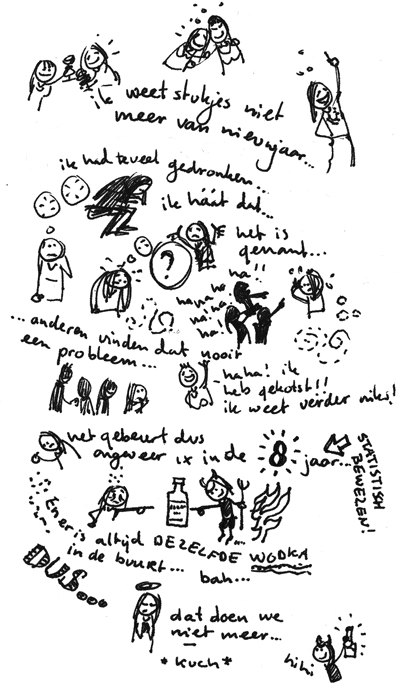 ik weet stukjes niet
meer van nieuwjaar...
ik had teveel gedronken...
ik háát dat...
het is
gênant...
?
ha!!
ho
haha
ha!
ha!
... anderen vinden dat nooit
een probleem...
haha! ik
heb gekotst!!
ik weet verder niks!
het gebeurt dus
ongeveer 1x in de 8 jaar...
STATISTISH
BEWEZEN!
En er is altijd DEZELFDE WODKA
in de buurt... bah...
DUS...
dat doen we
niet meer...
*kuch*
hihi